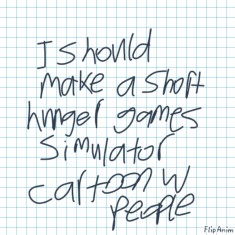 I should
make a short
hunger games
simulator
cartoon w
people
FlipAnim